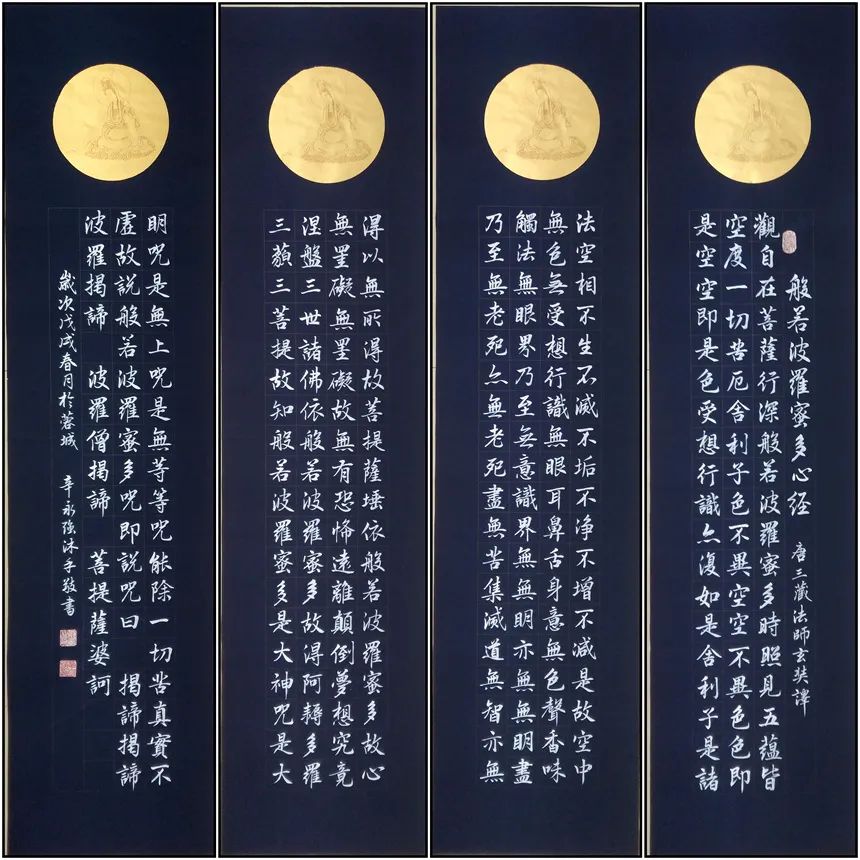 般若波羅蜜多心经 唐三藏法師玄奘譯
觀自在菩薩行深般若波羅蜜多時照見五蘊皆
空度一切苦厄舍利子色不異空空不異色色即
是空空即是色受想行識亦復如是舍利子是諸
法空相不生不滅不垢不净不增不减是故空中
無色無受想行識無眼耳鼻舌身意無色聲香味
觸法無眼界乃至無意識界無無明亦無無明盡
乃至無老死亦無老死盡無苦集滅道無智亦無
得以無所得故菩提薩埵依般若波羅蜜多故心
無罣礙無罣礙故無有恐怖遠離顛倒夢想究竟
涅盤三世諸佛依般若波羅蜜多故得阿耨多羅
三藐三菩提故知般若波羅蜜多是大神咒是大
明咒是無上咒是無等等咒能除一切苦真實不
虛故說般若波羅蜜多咒即說咒曰 揭諦揭諦
波羅揭諦 波羅僧揭諦 菩提薩婆訶
歲次戊戌春月於蓉城 辛永強沐手敬書